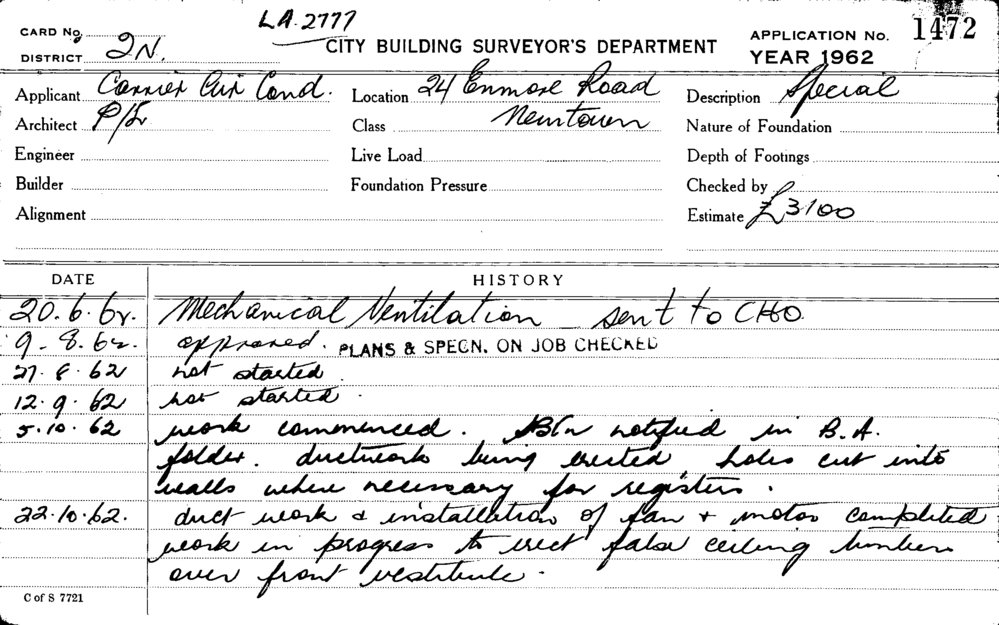 LA.2777
CARD No.
CITY BUILDING SURVEYOR'S DEPARTMENT
APPLICATION No. 1472
DISTRICT 2N.
YEAR 1962
Applicant Carrier Air Cond.
Location 24 Enmore Road
Description Special
Architect P/L
Class Newtown
Nature of Foundation
Engineer
Live Load
Depth of Footings
Builder
Foundation Pressure
Checked by
Alignment
Estimate £3100
DATE HISTORY
20.6.62. Mechanical Ventilation sent to CHO
9-8.62. approved. PLANS & SPECN. ON JOB CHECKED
27.8.62 not started.
12.9.62 not started.
5.10.62 work commenced. notified in B.A.
folder. ductwork being erected, holes cut into
walls where necessary for registers.
22.10.62. duct work & installation of fan + motor completed
work in progress to erect false ceiling timbers
over front vestibule.
C of S 7721